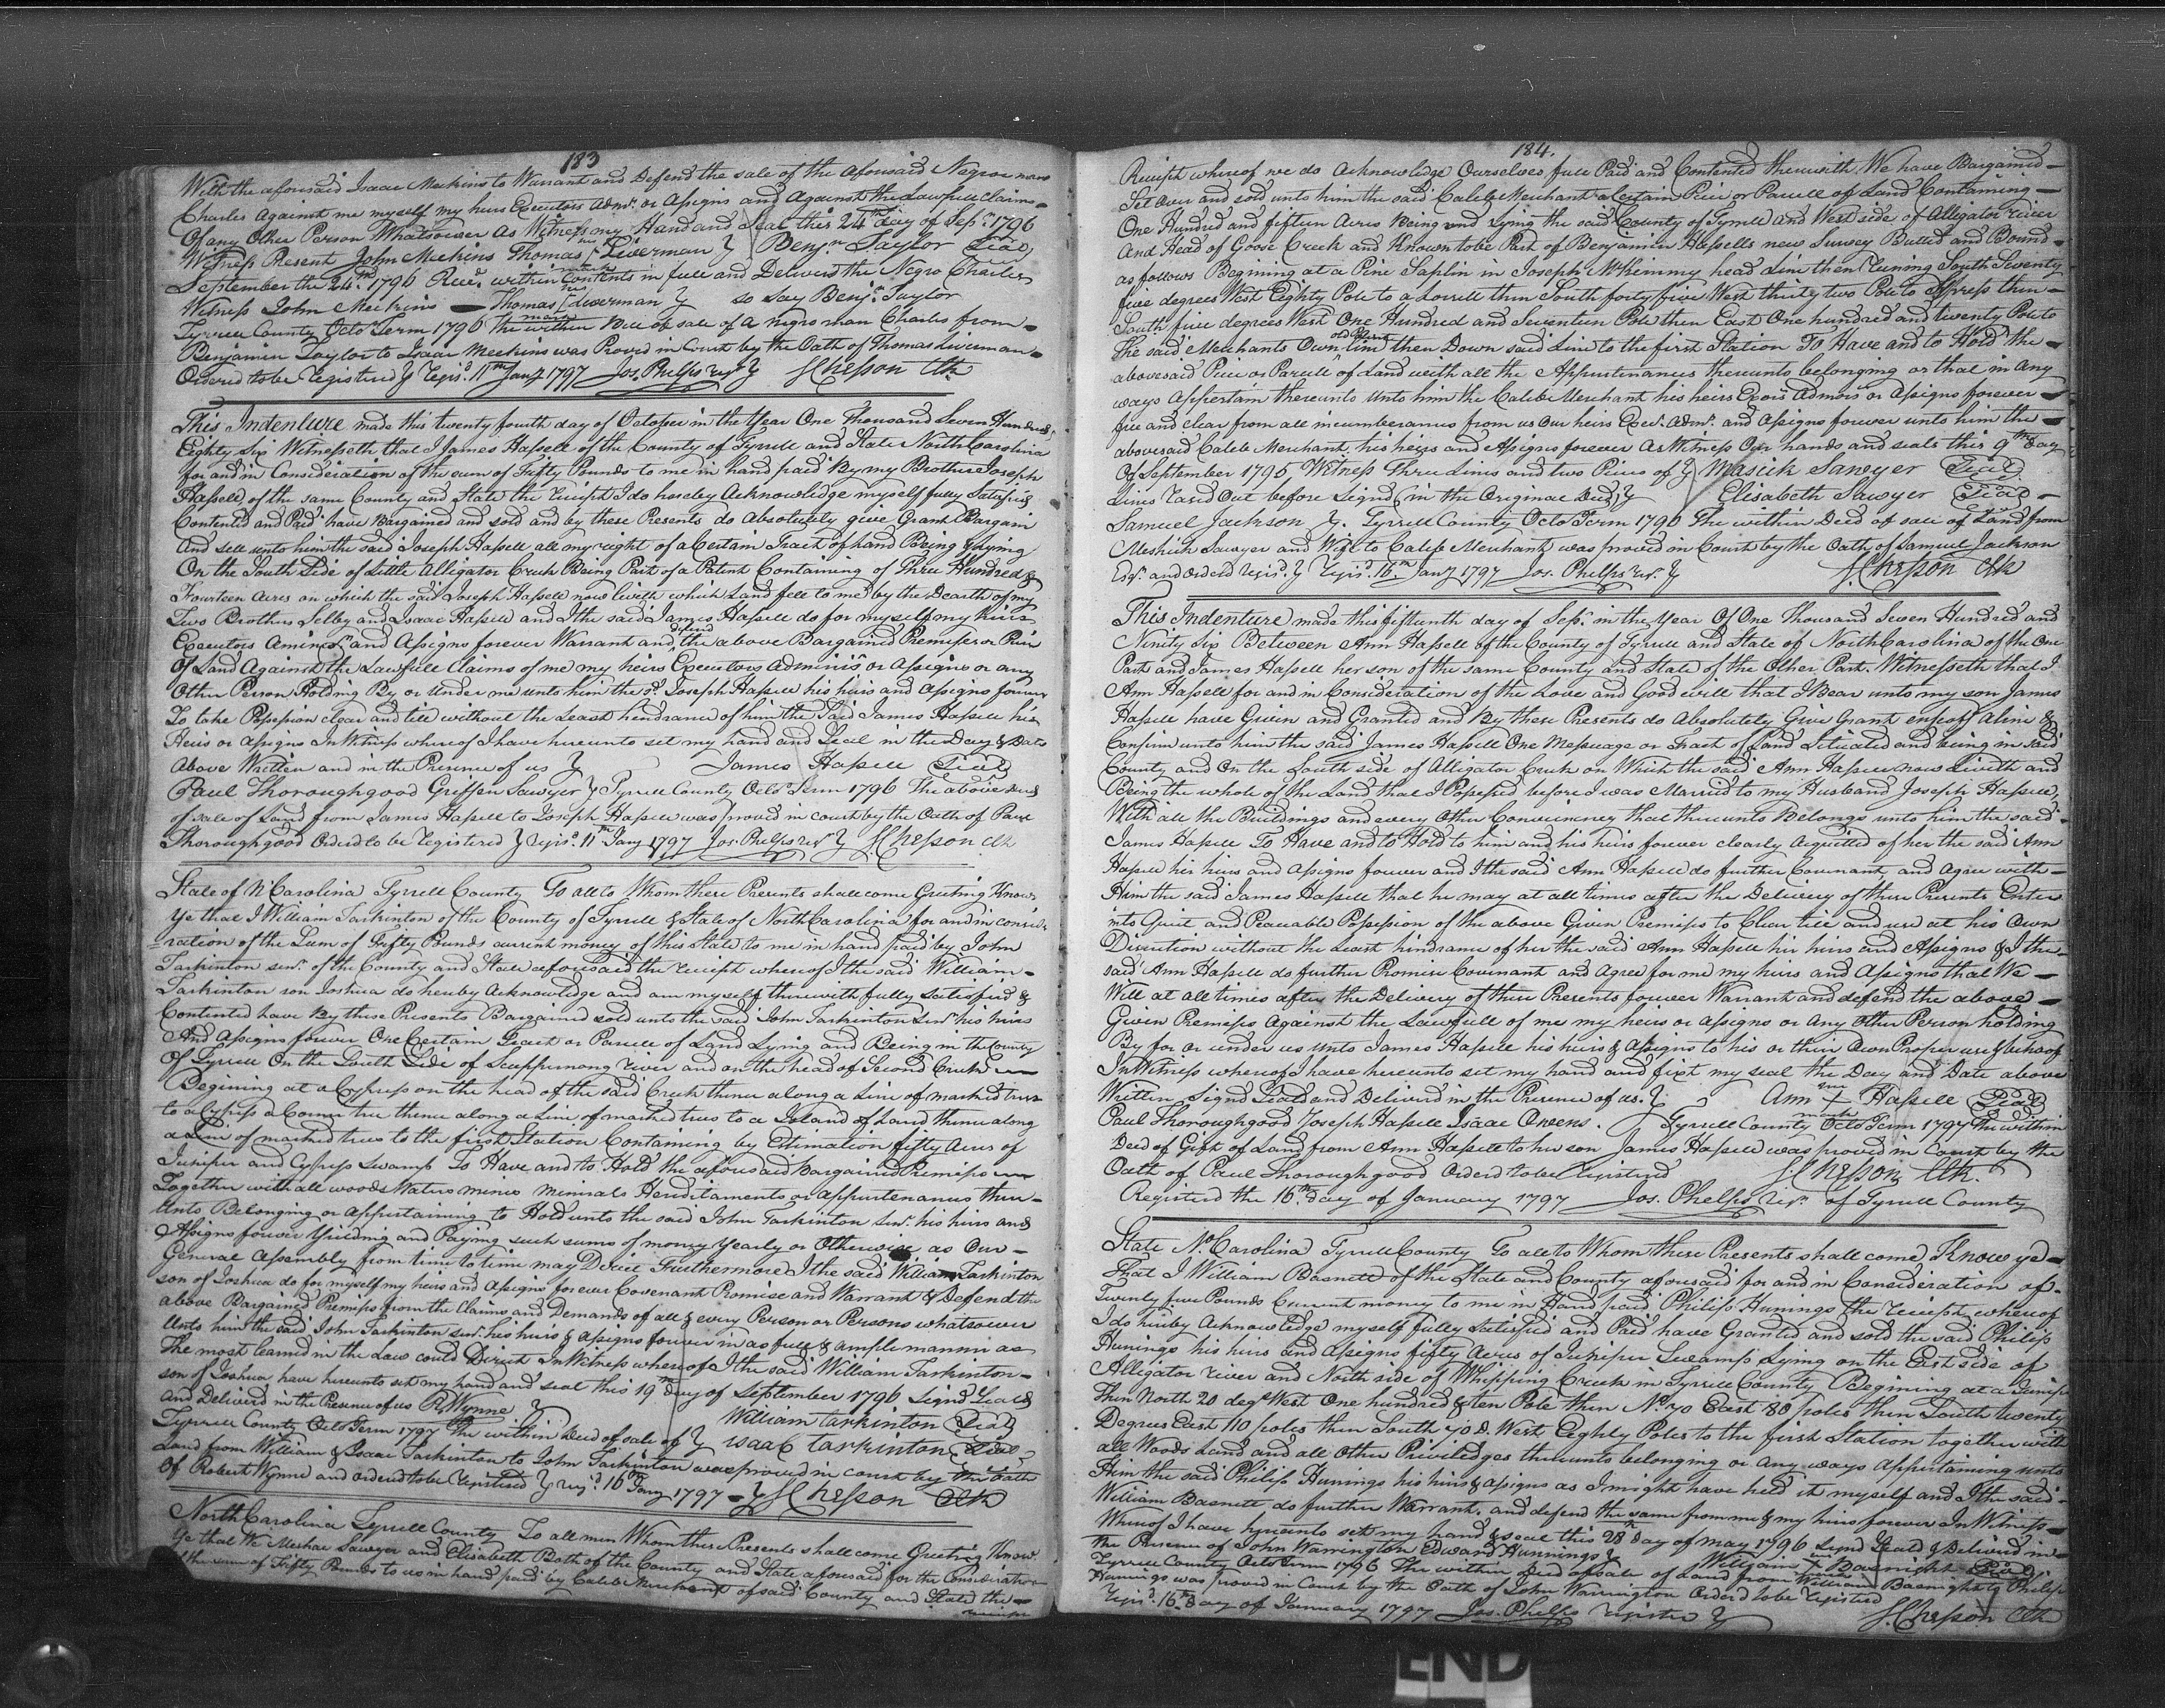 183
With the aforesaid Isaac Meekins to Warrant and Defend the sale of the Aforesaid Negroe man
Charles Against me myself my heirs Executors Admrs. or Assigns and Against the Lawfull Claims
Of any Other Person Whatsoever As Witness my Hand and Seal this 24th Day of Sepr. 1796
Witness Present John Meekins Thomas his Liverman } Benjn. Taylor Seal
September the 24th 1796 Recd. within Contents in full and Deliverd the Negro Charles
Witness John Meekins — Thomas his mark Liverman } so Say Benjn. Taylor
Tyrrell County Octo Term 1796 The within Bill of sale of a negro man Charles from
Benjamin Taylor to Isaac Meekins was Proved in Court by the Oath of Thomas Liverman
Ordered to be Registered } Regis.d 11th Jany 1797 Jos. Phelps regr } J Chesson Clk
This Indenture made this twenty fourth day of October in the Year One Thousand Seven Hundred
Eighty Six Witnesseth that I James Hassell of the County of Tyrrell and State North Carolina
for and in Consideration of the sum of Fifty Pounds to me in hand paid By my Brother Joseph
Hassell of the same County and State the Reciept I do hereby Acknowledge myself fully Satisfied
Contented and Paid have Bargained and sold and by these Presents do Absolutely give Grant Bargain
And sell unto him the said Joseph Hassell all my right of a Certain Tract of Land Being & lying
On the South Side of Little Alligator Creek Being Part of a Patent Containing of Three Hundred &
Fourteen Acres on which the said Joseph Hassell now liveth which Land fell to me by the Dearth of my
Two Brothers Selby and Isaac Hassell and I the said James Hassell do for myself my heirs
Executors Aminrs. and Assigns forever Warrant and defend the above Bargained Premises or Peice
Of Land Against the Lawfull Claims of me my heirs Executors Adminis or Assigns or any
Other Person Holding By or Under me unto him the sd. Joseph Hassell his heirs and Assigns forever
To take Possession clear and till without the Least hindrance of him the Said James Hassell his
Heirs or Assigns In Witness whereof I have hereunto set my hand and Seal in the Day & Date
Above Written and in the Presence of us } James Hassell Seal
Paul Thoroughgood Griffen Sawyer } Tyrrell County Octo Term 1796 The above deed
of sale of Land from James Hassell to Joseph Hassell was proved in court by the Oath of Paul
Thoroughgood Ordered to be Registered } regis.d 11th Jany 1797 Jos. Phelps regr } J Chesson Clk
State of No Carolina Tyrrell County To all to Whom these Presents shall come Greeting Know
Ye that I William Tarkinton of the County of Tyrrell & State of North Carolina for and in conside
ration of the Sum of Fifty Pounds current money of this State to me in hand paid by John
Tarkinton senr. of the County and State aforesaid the reciept whereof I the said William
Tarkinton son Joshua do hereby Acknowledge and am myself therewith fully Satisfied &
Contented have By these Presents Bargained sold unto the said John Tarkinton Senr his heirs
And Assigns forever One Certain Tract or Parcell of Land Lying and Being in the County
Of Tyrrell On the South Side of Scuppernong river and on the head of Second Creek
Begining at a Cypress on the head of the said Creek thence along a Line of marked trees
to a Cypress a Corner tree thence along a Line of marked trees to a Island of Land thence along
a Line of marked trees to the first Station Containing by Estimation fifty Acres of
Juniper and Cypress Swamp To Have and to Hold the aforesaid Bargained Premises
Together with all woods Waters mines Minirals Hereditaments or Appurtenances there
Unto Belonging or Appertaining to Hold unto the said John Tarkinton Senr. his heirs and
Assigns forever Yeilding and Paying such sums of money Yearly or Otherwise as Our
General Assembly from time to time may Direct Furthermore I the said William Tarkinton
son of Joshua do for myself my heirs and Assigns for ever Covenant Promise and Warrant & Defend the
above Bargained Premises from the Claims and Demands of all & every Person or Persons whatsoever
Unto him the said John Tarkinton senr. his heirs & assigns forever in as full & ample manner as
The most learned in the Law could Direct In Witness whereof I the said William Tarkinton
son of Joshua have hereunto set my hand and seal this 19th Day of September 1796 Signd Seald
and Deliverd in the Presence of us R Wynne } William tarkinton Seal
Tyrrell County Octo Term 1797 The within Deed of sale of } isaac tarkinton Seal
Land from William & Isaac Tarkinton to John Tarkinton was proved in court by the Oath
Of Robert Wynne and ordered to be Registered } regd. 16th Jany 1797 } J Chesson Clk
North Carolina Tyrrell County To all men Whom these Presents shall come Greeting Know
Ye that We Meshac Sawyer and Elisabeth Both of the County and State aforesaid for the Consideration
of the sum of Fifty Pounds to us in hand paid by Caleb Merchant of said County and State the
reciept
184.
Reciept whereof we do Acknowledge Ourselves full Paid and Contented therewith We have Bargained
Set Over and sold unto him the said Caleb Merchant a Certain Peice or Parcell of Land Containing
One Hundred and fifteen Acres Being and Lying the said County of Tyrrell and West side of Alligator river
And Head of Goose Creek and Known to be Part of Benjamin Hassells new Survey Butted and Bound
as follows Begining at a Pine Saplin in Joseph McKimmy head Line then Runing South Seventy
five degrees West Eighty Pole to a Lorrell then South forty five West thirty two Pole to Cypress then
South five degrees West One Hundred and Seventeen Pole then East One hundred and twenty Pole to
The said Merchants Own old Line then Down said Line to the first Station To Have and to Hold the
abovesaid Peice or Parcell of Land with all the Appurtenances thereunto belonging or that in Any
ways Appertain thereunto Unto him the Caleb Merchant his heirs Exors Admors or Assigns forever
free and clear from all incumberances from us Our heirs Exes. Admrs. and Assigns forever unto him the
abovesaid Caleb Merchant his heirs and Assigns forever As Witness Our hands and seals this 9th Day
Of September 1796 Witness Three Lines and two Peices of } Masick Sawyer Seal
Lines rased Out before Signd (in the Original Deed) } Elisabeth Sawyer Seal
Samuel Jackson } Tyrrell County Octo Term 1796 The within Deed of sale of Land from
Meshick Sawyer and Wife to Caleb Merchant was proved in Court by the Oath of Samuel Jackson
Esqr. and Ordered regisd. } Regisd. 16th Jany 1797 Jos. Phelps regr. } J Chesson Clk
This Indenture made this fifteenth day of Sepr. in the Year Of One Thousand Seven Hundred and
Ninity Six Between Ann Hassell of the County of Tyrrell and State of North Carolina of the One
Part and James Hassell her son of the same County and State of the Other Part. Witnesseth that I
Ann Hassell for and in Consideration of the Love and Good will that I Bear unto my son James
Hassell have Given and Granted and By these Presents do Absolutely Give Grant enfeoff Aline &
Confirm unto him the said James Hassell One Messuage or Tract of Land Situated and being in said
County and On the South side of Alligator Creek on Which the said Ann Hassell now Liveth and
Being the whole of the Land that I Possessed before I was Married to my Husband Joseph Hassell,
With all the Buildings and every Other Conveniency that thereunto Belongs unto him the said
James Hassell To Have and to Hold to him and his heirs forever clearly Acquitted of her the said Ann
Hassell her heirs and Assigns forever and I the said Ann Hassell do further Covenant and Agree with
Him the said James Hassell that he may at all times after the Delivery of these Presents Enter
into Quiet and Peaceable Possession of the above Given Premises to Clear till and use at his Own
Discretion without the Least hindrance of her the said Ann Hassell her heirs and Assigns & I the
said Ann Hassell do further Promise Covenant and Agree for me my heirs and Assigns that We
Will at all times after the Delivery of these Presents forever Warrant and defend the above
Given Premises Against the Lawfull of me my heirs or Assigns or Any Other Person holding
By for or under us Unto James Hassell his heirs & Assigns to his or their Own Proper use & behoof
In Witness whereof I have hereunto set my hand and fixt my seal the Day and Date above
Written Signd Seald and Deliverd in the Presence of us. } Ann her X mark Hassell Seal
Paul Thoroughgood Joseph Hassell Isaac Owens. } Tyrrell County Octo Term 1797 The within
Deed of Gift of Land from Ann Hassell to her son James Hassell was proved in Court by the
Oath of Paul Thoroughgood Orderd to be Registered J Chesson Clk.
Registerd the 16th day of January 1797 Jos. Phelps regr. of Tyrrell County
State No. Carolina Tyrrell County To all to Whom these Presents shall come Know ye
That I William Basnett of the State and County aforesaid for and in Consideration of
Twenty five Pounds Current money to me in Hand paid Philip Hunings the reciept whereof
I do hereby Acknowledge myself fully Satisfied and Paid have Granted and sold the said Philip
Hunings his heirs and Assigns fifty Acres of Juniper Swamp Lying on the East side of
Alligator river and North side of Whipping Creek in Tyrrell County Begining at a Juniper
Then North 20 degs West One hundred & ten Pole then No. 70 East 80 poles then South twenty
Degrees East 110 poles then South 70 D. West Eighty Poles to the first Station together with
all Woods Land and all Other Priviledges thereunto belonging or Any ways Appertaining unto
Him the said Philip Hunnings his heirs & Assigns as I might have held it myself and I the said
William Basnett do further Warrant and defend the same from me & my heirs forever In Witness
Whereof I have hereunto set my hand & seal this 28th day of may 1796 Signd Seald & Deliverd in
The Presence of John Warrington Edward Hunnings } William his X mark Basnight Seal
Tyrrell County Octo Term 1796 The within Deed of sale of Land from William Basnight to Philip
Hunnings was proved in Court by the Oath of John Warrington Orderd to be registerd
Regisd. 16th Day of January 1797 Jos. Phelps register } J Chesson Clk
END